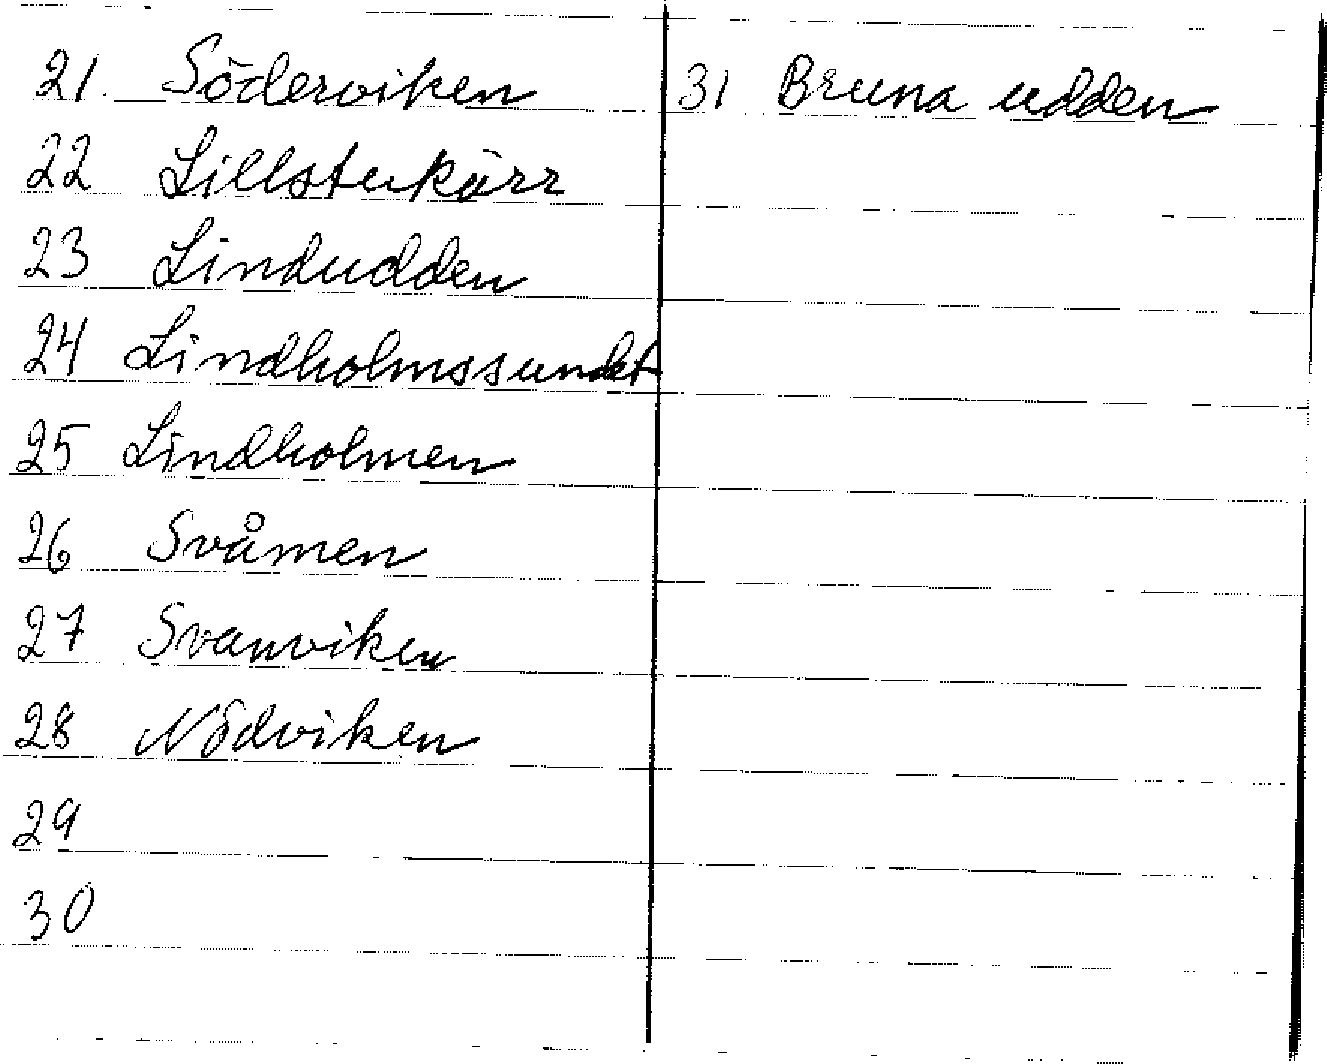 21. Söderviken
22 Lillstukärr
23 Lindudden
24 Lindholmssundet
25 Lindholmen
26 Svåmen
27 Svanviken
28 Nödviken
29
30
31 Bruna udden